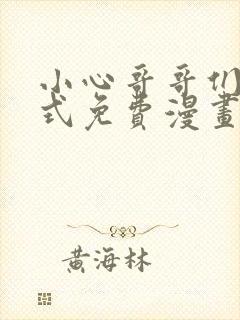 小心哥哥们
式免費漫畫
黄海林